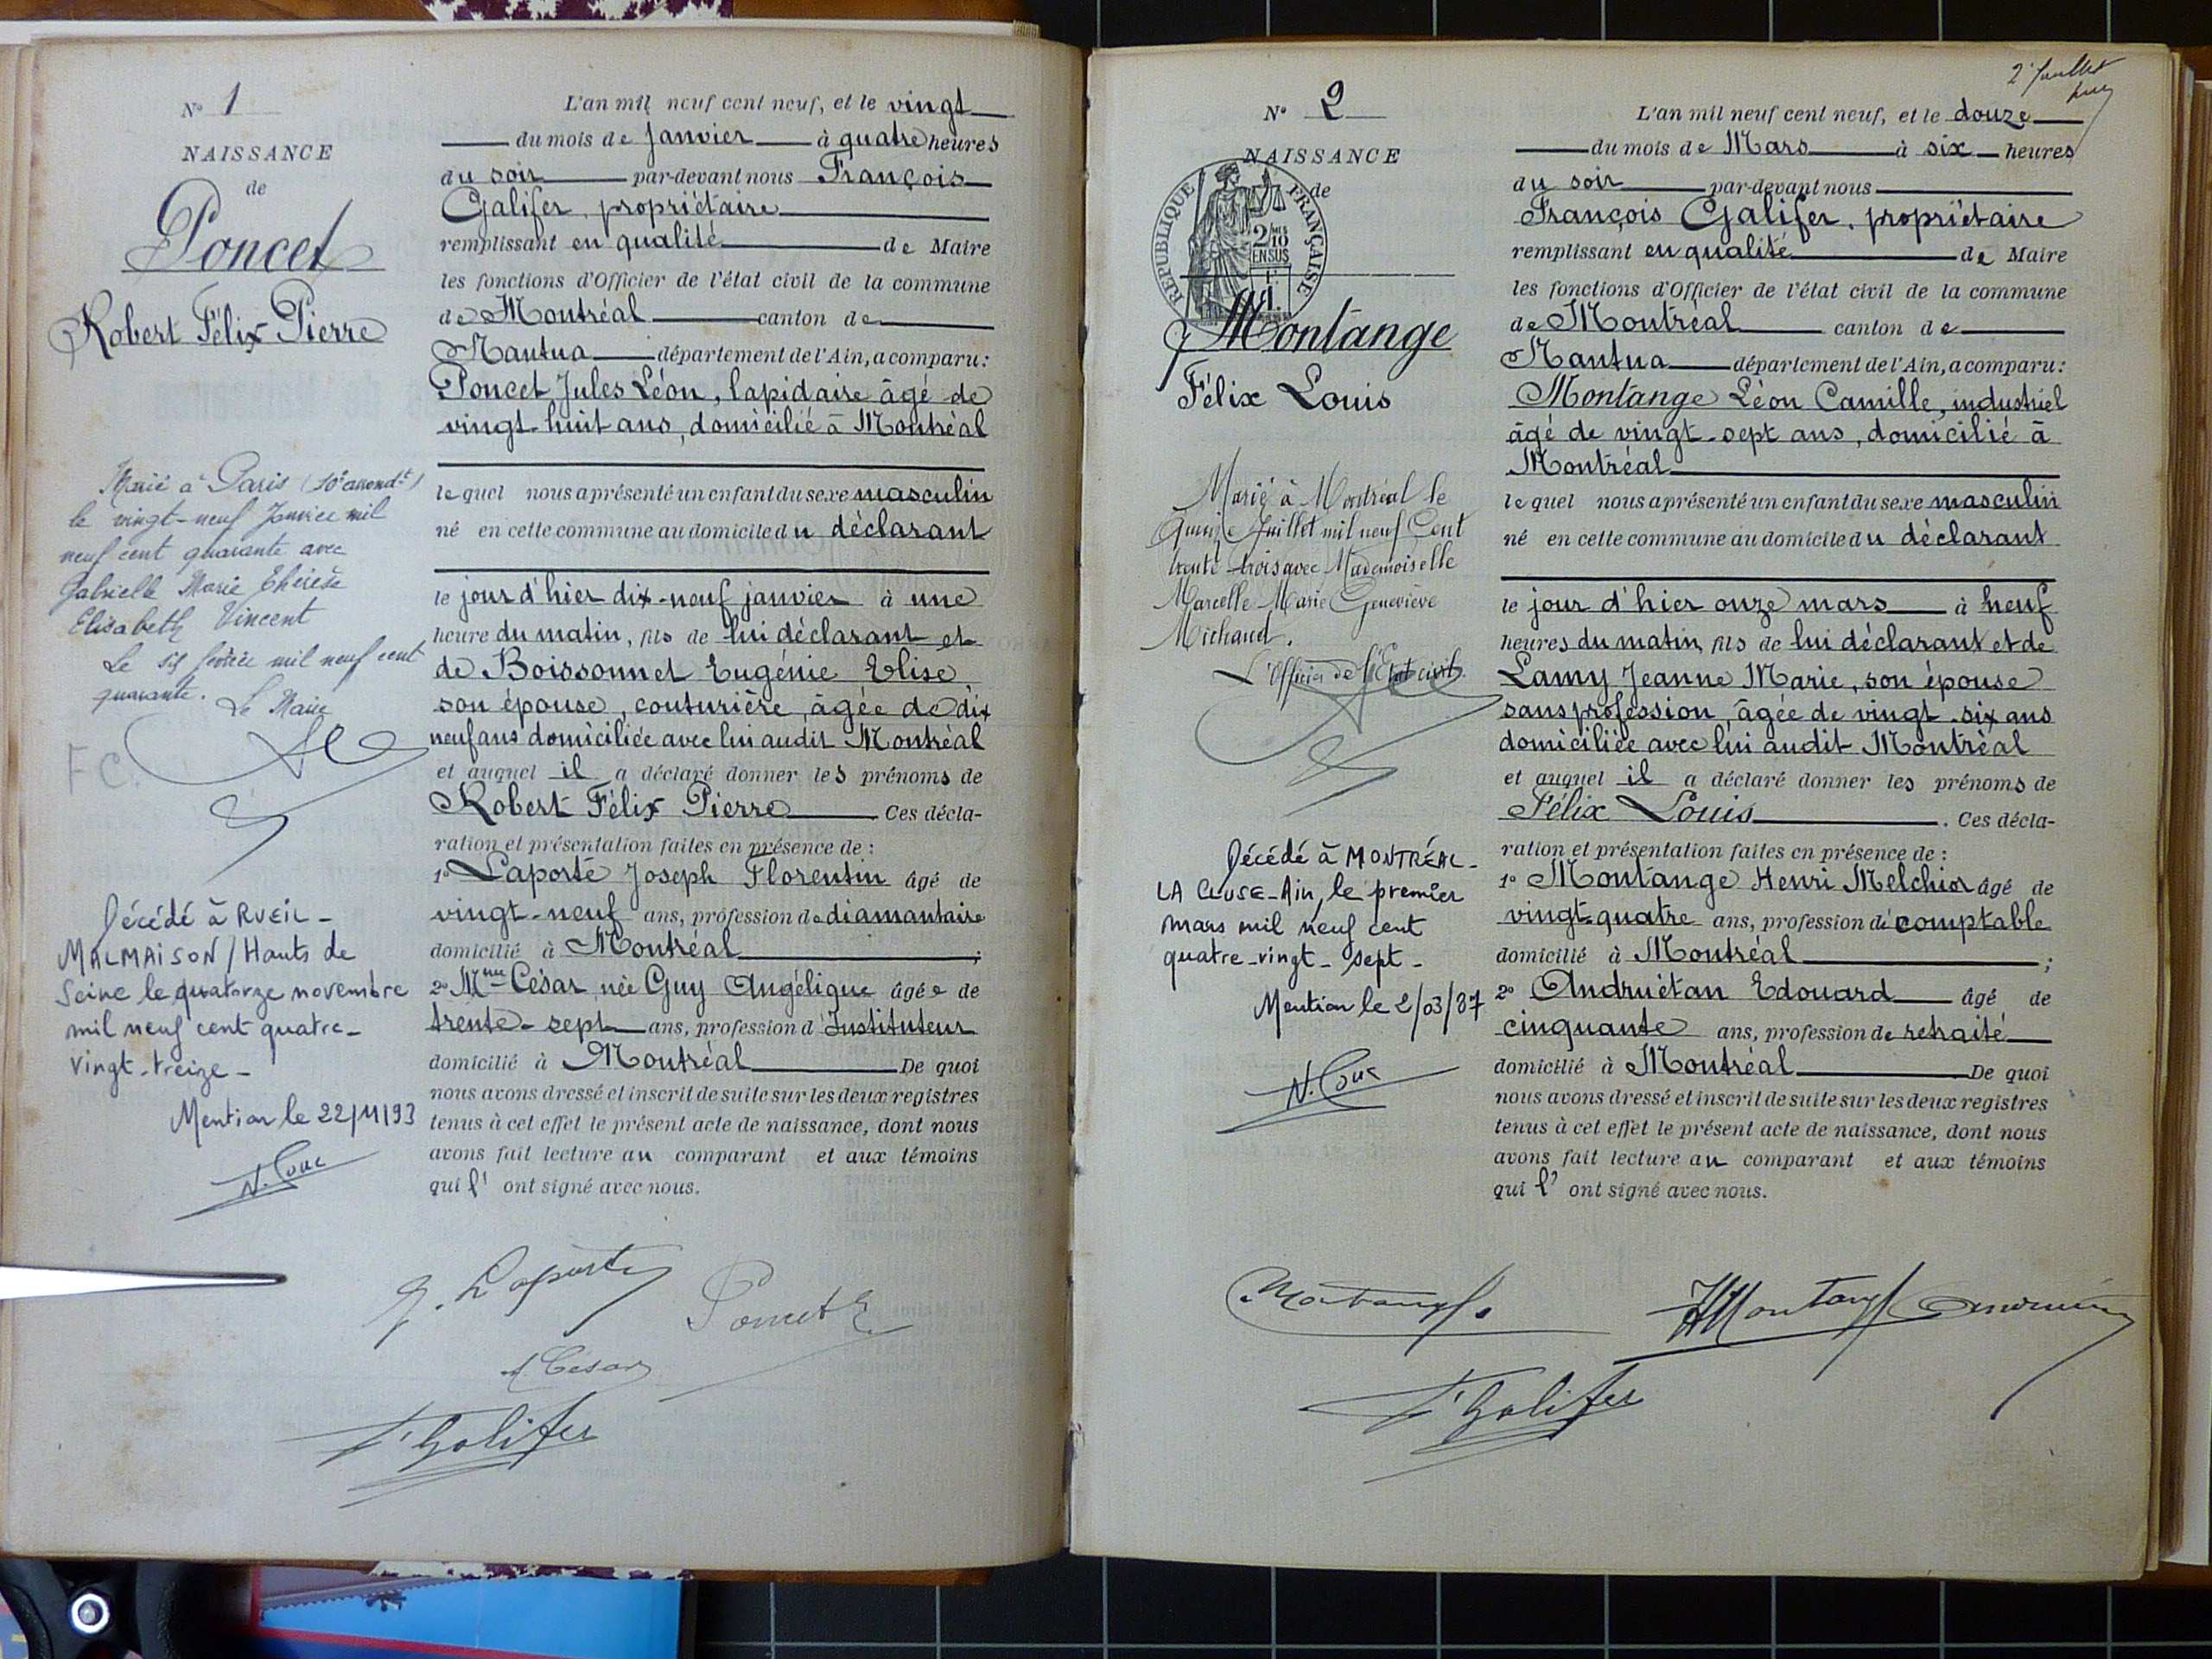 N° 1
NAISSANCE
de
Poncet
Robert Félix Pierre
Marié à Paris (10e arrondt)
le vingt-neuf Janvier mil
neuf cent quarante avec
Gabrielle Marie Thérèse
Elisabeth Vincent
Le six février mil neuf cent
quarante. Le Maire
FC.
Décédé à RUEIL-
MALMAISON / Hauts de
Seine le quatorze novembre
mil neuf cent quatre-
vingt-treize-
Mention le 22/11/93
L'an mil neuf cent neuf, et le vingt
du mois de Janvier à quatre heures
du soir par-devant nous François
Galifer, propriétaire
remplissant en qualité de Maire
les fonctions d'Officier de l'état civil de la commune
de Montréal canton de
Nantua département de l'Ain, a comparu :
Poncet Jules Léon, lapidaire âgé de
vingt-huit ans, domicilié à Montréal
le quel nous a présenté un enfant du sexe masculin
né en cette commune au domicile du déclarant
le jour d'hier dix-neuf janvier à une
heure du matin, fils de lui déclarant et
de Boissonnet Eugénie Elise
son épouse, couturière, âgée de dix
neuf ans domiciliée avec lui audit Montréal
et auquel il a déclaré donner les prénoms de
Robert Félix Pierre. Ces décla-
ration et présentation faites en présence de :
1° Laporte Joseph Florentin âgé de
vingt-neuf ans, profession de diamantaire
domicilié à Montréal ;
2° Mme César née Guy Angélique âgée de
trente-sept ans, profession d'Instituteur
domicilié à Montréal De quoi
nous avons dressé et inscrit de suite sur les deux registres
tenus à cet effet le présent acte de naissance, dont nous
avons fait lecture au comparant et aux témoins
qui l' ont signé avec nous.
J. Laporte
Poncet
A César
F Galifer
2e feuillet
N° 2
NAISSANCE
de
RÉPUBLIQUE FRANÇAISE
2/10
EN SUS
Montange
Félix Louis
Marié à Montréal le
Quinze Juillet mil neuf Cent
trente trois avec Mademoiselle
Marcelle Marie Geneviève
Michaud.
L'Officier de l'Etat civil.
Décédé à MONTRÉAL-
LA CLUSE-Ain, le premier
mars mil neuf cent
quatre-vingt-sept-
Mention le 2/03/87
L'an mil neuf cent neuf, et le douze
du mois de Mars à six heures
du soir par-devant nous
François Galifer, propriétaire
remplissant en qualité de Maire
les fonctions d'Officier de l'état civil de la commune
de Montréal canton de
Nantua département de l'Ain, a comparu :
Montange Léon Camille, industriel
âgé de vingt-sept ans, domicilié à
Montréal
le quel nous a présenté un enfant du sexe masculin
né en cette commune au domicile du déclarant
le jour d'hier onze mars à neuf
heures du matin, fils de lui déclarant et de
Lamy Jeanne Marie, son épouse
sans profession, âgée de vingt-six ans
domiciliée avec lui audit Montréal
et auquel il a déclaré donner les prénoms de
Félix Louis. Ces décla-
ration et présentation faites en présence de :
1° Montange Henri Melchior âgé de
vingt-quatre ans, profession de comptable
domicilié à Montréal ;
2° Andruétan Edouard âgé de
cinquante ans, profession de retraité
domicilié à Montréal De quoi
nous avons dressé et inscrit de suite sur les deux registres
tenus à cet effet le présent acte de naissance, dont nous
avons fait lecture au comparant et aux témoins
qui l' ont signé avec nous.
Montange
H Montange
F Galifer